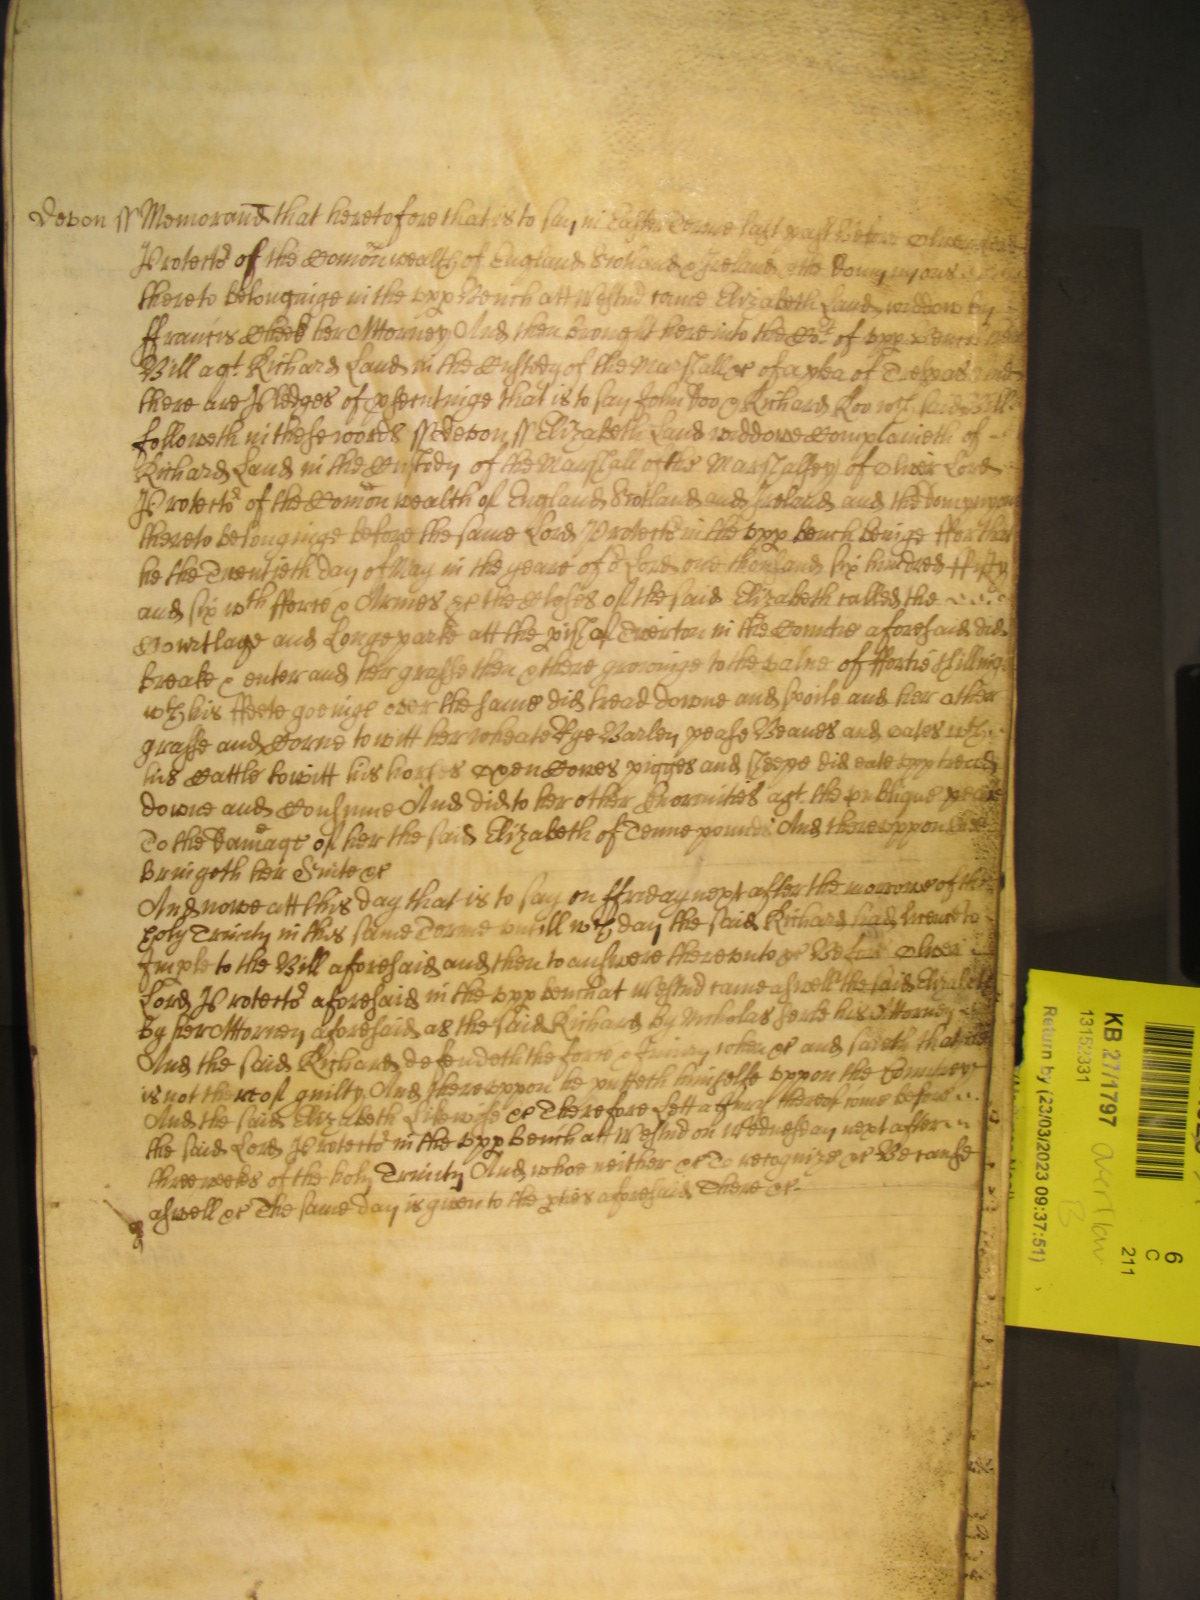 Devon ss Memorand that heretofore that is to say in Easter Terme last past Before Oliver Lord
Protector of the Comon wealth of England Scotland & Ireland & the Dominyons
thereto belonginge in the upp Bench att Westmr came Elizabeth Land widdow by
ffrancis her Attorney And then brought here into the Cort of upp Bench
Bill agt Richard Land in the Custody of the Marshall &c of a plea of Trespas And
there are Pledges of psecutinge that is to say John Doo & Richard Roo wch said Bill
followeth in these words ss Devon ss Elizabeth Land widdowe Complaineth of
Richard Land in the Custody of the Marshall of the Marshalsey of Oliver Lord
Protector of the Comon wealth of England Scotland and Ireland and the Dominyons
thereto belonginge before the same Lord Protector in the upp bench beinge ffor that
he the Twentieth day of May in the yeare of or Lord one thousand six hundred ffifty
and six wth fforce & Armes &c the Closes of the said Elizabeth called the
Courtlage and Longe parke att the pish of Tiverton in the Countie aforesaid did
breake & enter and her grasse then & there growinge to the value of ffortie shillings
wth his ffeete goeinge over the same did tread downe and spoile and her other
grasse and Corne to witt her wheate Rye Barley pease Beanes and oates wth
his Cattle to witt his horses oxen Cowes pigges and sheepe did eate upp tread
downe and Consume And did to her other Enormities agt the publique peace
To the Damage of her the said Elizabeth of Tenne pounds And thereuppon shee
bringeth her Suite &c
And nowe att this day that is to say on ffriday next after the morrowe of the
holy Trinity in this same Terme untill wch day the said Richard had licence to
Imple to the Bill aforesaid and then to answere thereunto &c Before Oliver
Lord Protector aforesaid in the upp bench at Westmr came aswell the said Elizabeth
by her Attorney aforesaid as the said Richard by Nicholas his Attorney
And the said Richard defendeth the force & Iniury when &c and saith that he
is not thereof guilty And thereuppon he putteth himselfe uppon the Countrey
And the said Elizabeth likewise &c Therefore Lett a Jury thereof come before
the said Lord Protector in the upp bench att Westmr on Wednesday next after
three weeks of the holy Trinity And whoe neither &c To recognize &c Because
aswell &c The same day is given to the pties aforesaid There &c
KB 27/1797
13152331
Return by (23/03/2023 09:37:51)
6
C
211